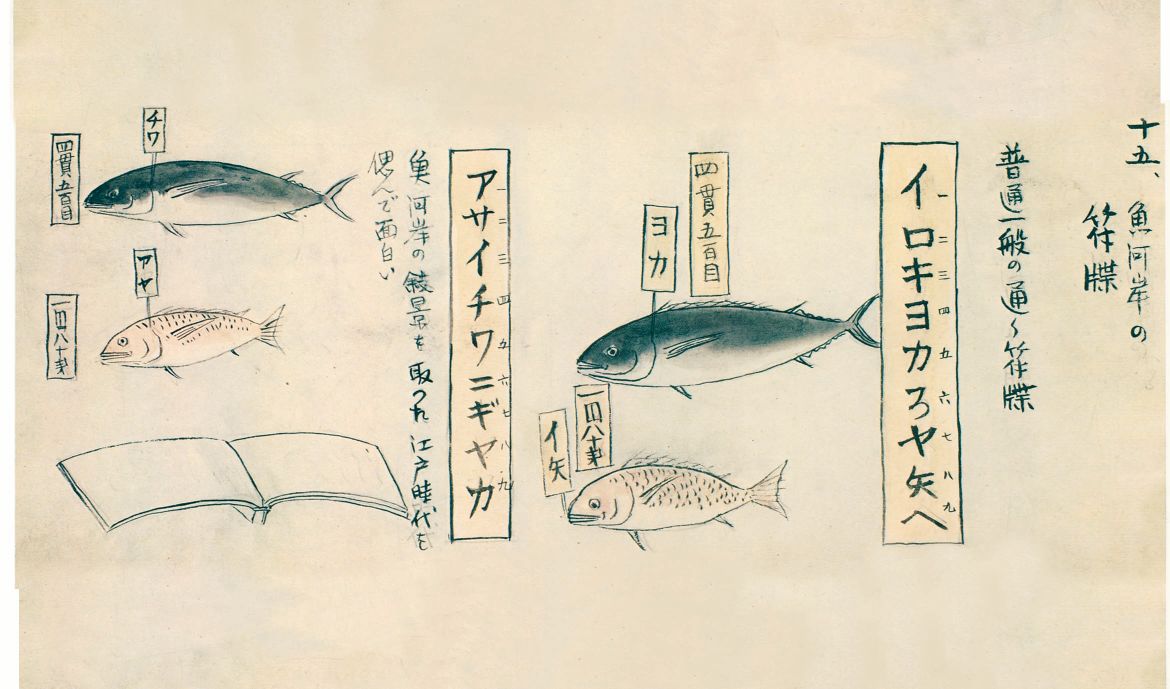 十五、魚河岸の
符牒
普通一般の通り符牒
イロキヨカろヤ矢へ
一二三四五六七八九
四貫五百目
ヨカ
一円八十銭
イ矢
アサイチワニギヤカ
一二三四五六七八九
魚河岸の
を取つた江戸時代を
偲んで面白い
チワ
四貫五百目
アヤ
一円八十銭